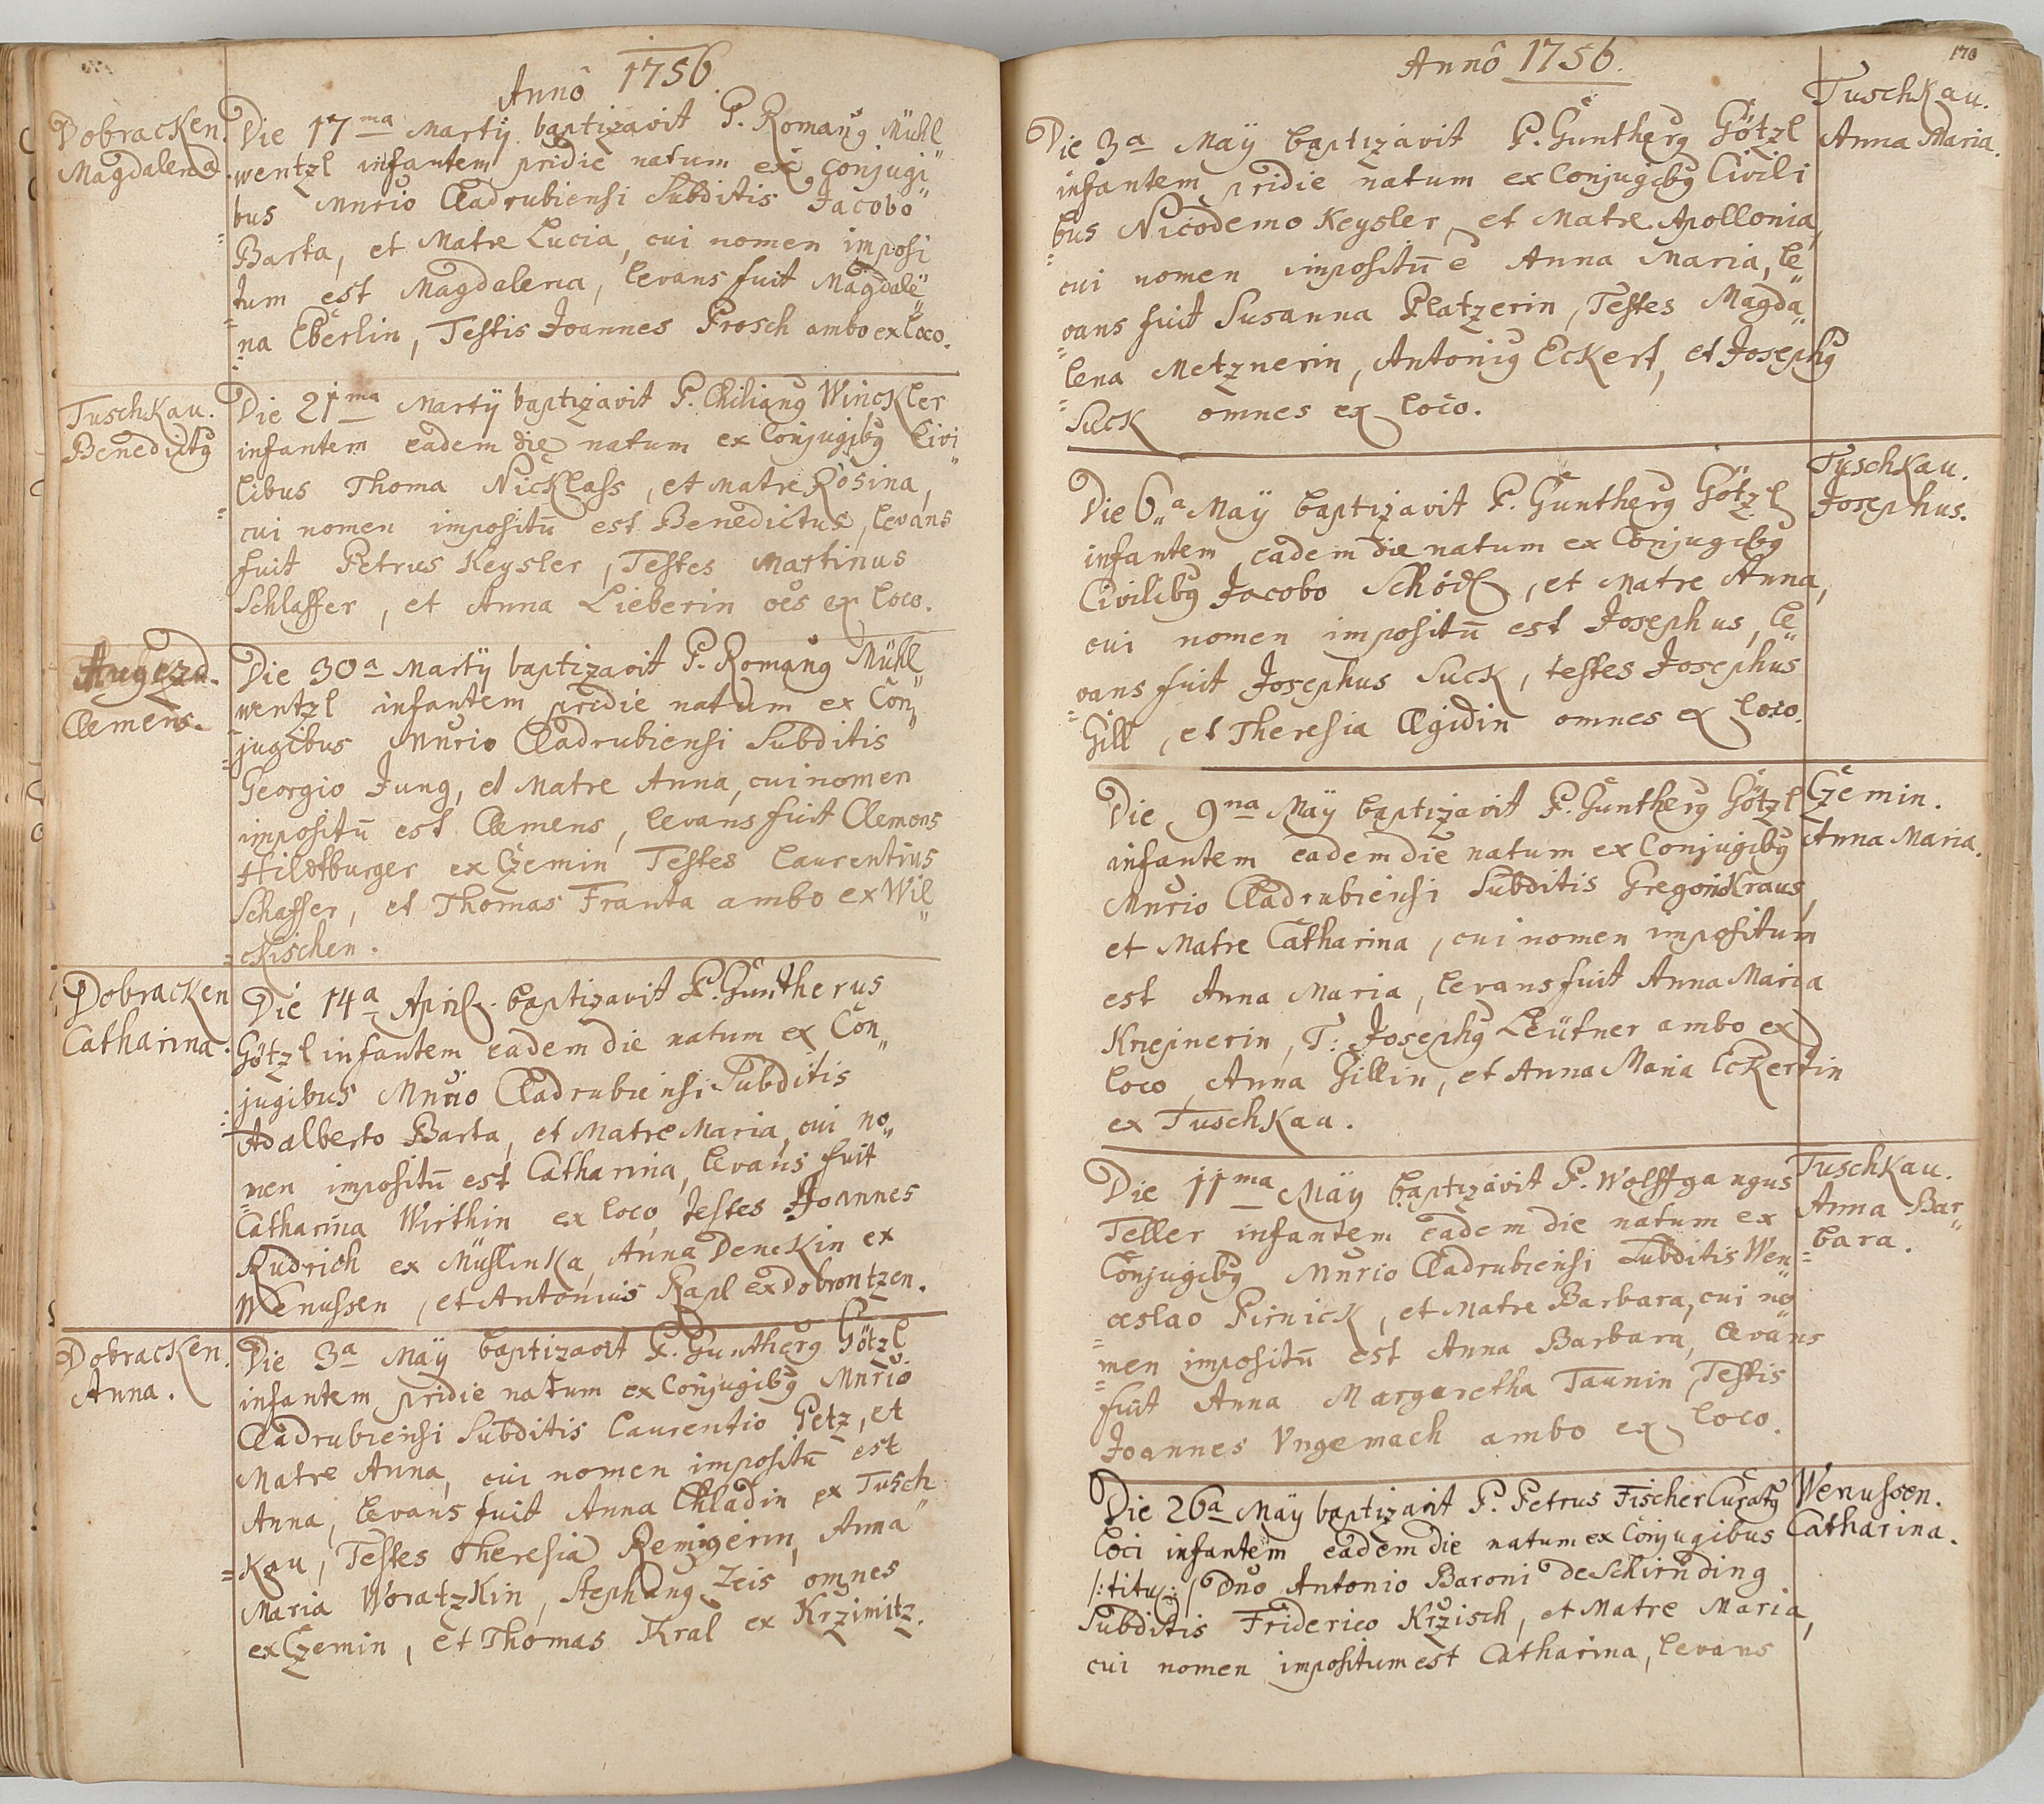 Anno 1756.
Dobracken.
Magdalena.
Die 17ma Martÿ baptizavit P. Romang Mühl„
wentzl infantem pridie natum ex conjugi„
bus Mnrio Cladrubiensi Subditis Jacobo
Barta, et Matre Lucia, cui nomen imposi„
tum est Magdalena, levans fuit Magdale„
na Eberlin, Testis Joannes Prosch ambo ex loco.
Tuschkau.
Benedictg
Die 21ma Martÿ baptizavit P. Chiliang Winckler
infantem eadem die natum ex Conjugibg Civi„
libus Thoma Nicklass, et Matre Rosina,
cui nomen impositū est Benedictus, levans
fuit Petrus Keysler, Testes Martinus
Schlaffer, et Anna Lieberin oēs ex loco.
Augezd.
Clemens.
Die 30a Martÿ baptizavit P. Romang Mühl„
wentzl infantem pridie natum ex Con„
jugibus Mnrio Cladrubiensi Subditis
Georgio Jung, et Matre Anna, cui nomen
impositū est Clemens, levans fuit Clemens
Hildtburger ex Czemin Testes Laurentius
Schaffer, et Thomas Franta ambo ex Wil„
ckischen.
Dobracken
Catharina.
Die 14a April. baptizavit P. Güntherus
Götzl infantem eadem die natum ex Con„
jugibus Mnrio Cladrubiensi Subditis
Adalberto Barta, et Matre Maria, cui no„
men impositū est Catharina, levans fuit
Catharina Wirthin ex loco, testes Joannes
Rudrich ex Müslinka, Anna Denckin ex
Wenussen, et Antonius Rapl ex Dobrontzen.
Dobracken.
Anna.
Die 3a Maÿ baptizavit P. Guntherg Götzl
infantem pridie natum ex Conjugibg Mnrio
Cladrubiensi Subditis Laurentio Petz, et
Matre Anna, cui nomen impositū est
Anna, levans fuit Anna Chladin ex Tusch„
kau, Testes Theresia Remigerin, Anna
Maria Woratzkin, Stephang Zeis omnes
ex Czemin, et Thomas Kral ex Krzimitz.
170
Anno 1756.
Tuschkau.
Anna Maria.
Die 3a Maÿ baptizavit P. Guntherg Götzl
infantem pridie natum ex Conjugibg Civili
bus Nicodemo Keysler, et Matre Apollonia,
cui nomen impositū ē Anna Maria, le„
vans fuit Susanna Platzerin, Testes Magda„
lena Metznerin, Antonig Eckert, et Josephg
Suck omnes ex loco.
Tuschkau.
Josephus.
Die 6„a Maÿ baptizavit P. Guntherg Götzl
infantem eadem die natum ex Conjugibg
Civilibg Jacobo Schödl, et Matre Anna,
cui nomen impositū est Josephus, le„
vans fuit Josephus Suck, testes Josephus
Gill, et Theresia Ægidin omnes ex loco.
Czemin.
Anna Maria.
Die 9na Maÿ baptizavit P. Guntherg Götzl
infantem eadem die natum ex Conjugibg
Mnrio Cladrubiensi Subditis Gregorio Kraus,
et Matre Catharina, cui nomen impositum
est Anna Maria, levans fuit Anna Maria
Kriepnerin, T: Josephg Leütner ambo ex
loco, Anna Gillin, et Anna Maria Eckertin
ex Tuschkau.
Tuschkau.
Anna Bar„
bara.
Die 11ma Maÿ baptizavit P. Wolffgangus
Teller infantem eadem die natum ex
Conjugibg Mnrio Cladrubiensi Subditis Wen„
ceslao Pirnick, et Matre Barbara, cui no„
men impositū est Anna Barbara, levans
fuit Anna Margaretha Taunin, Testis
Joannes Ungemach ambo ex loco.
Wenussen.
Catharina.
Die 26a Maÿ baptizavit P. Petrus Fischer Curatg
loci infantem eadem die natum ex Conjugibus
/:titul:/ Dno Antonio Baroni De Schirnding
Subditis Friderico Krzisch, et Matre Maria,
cui nomen impositum est Catharina, levans